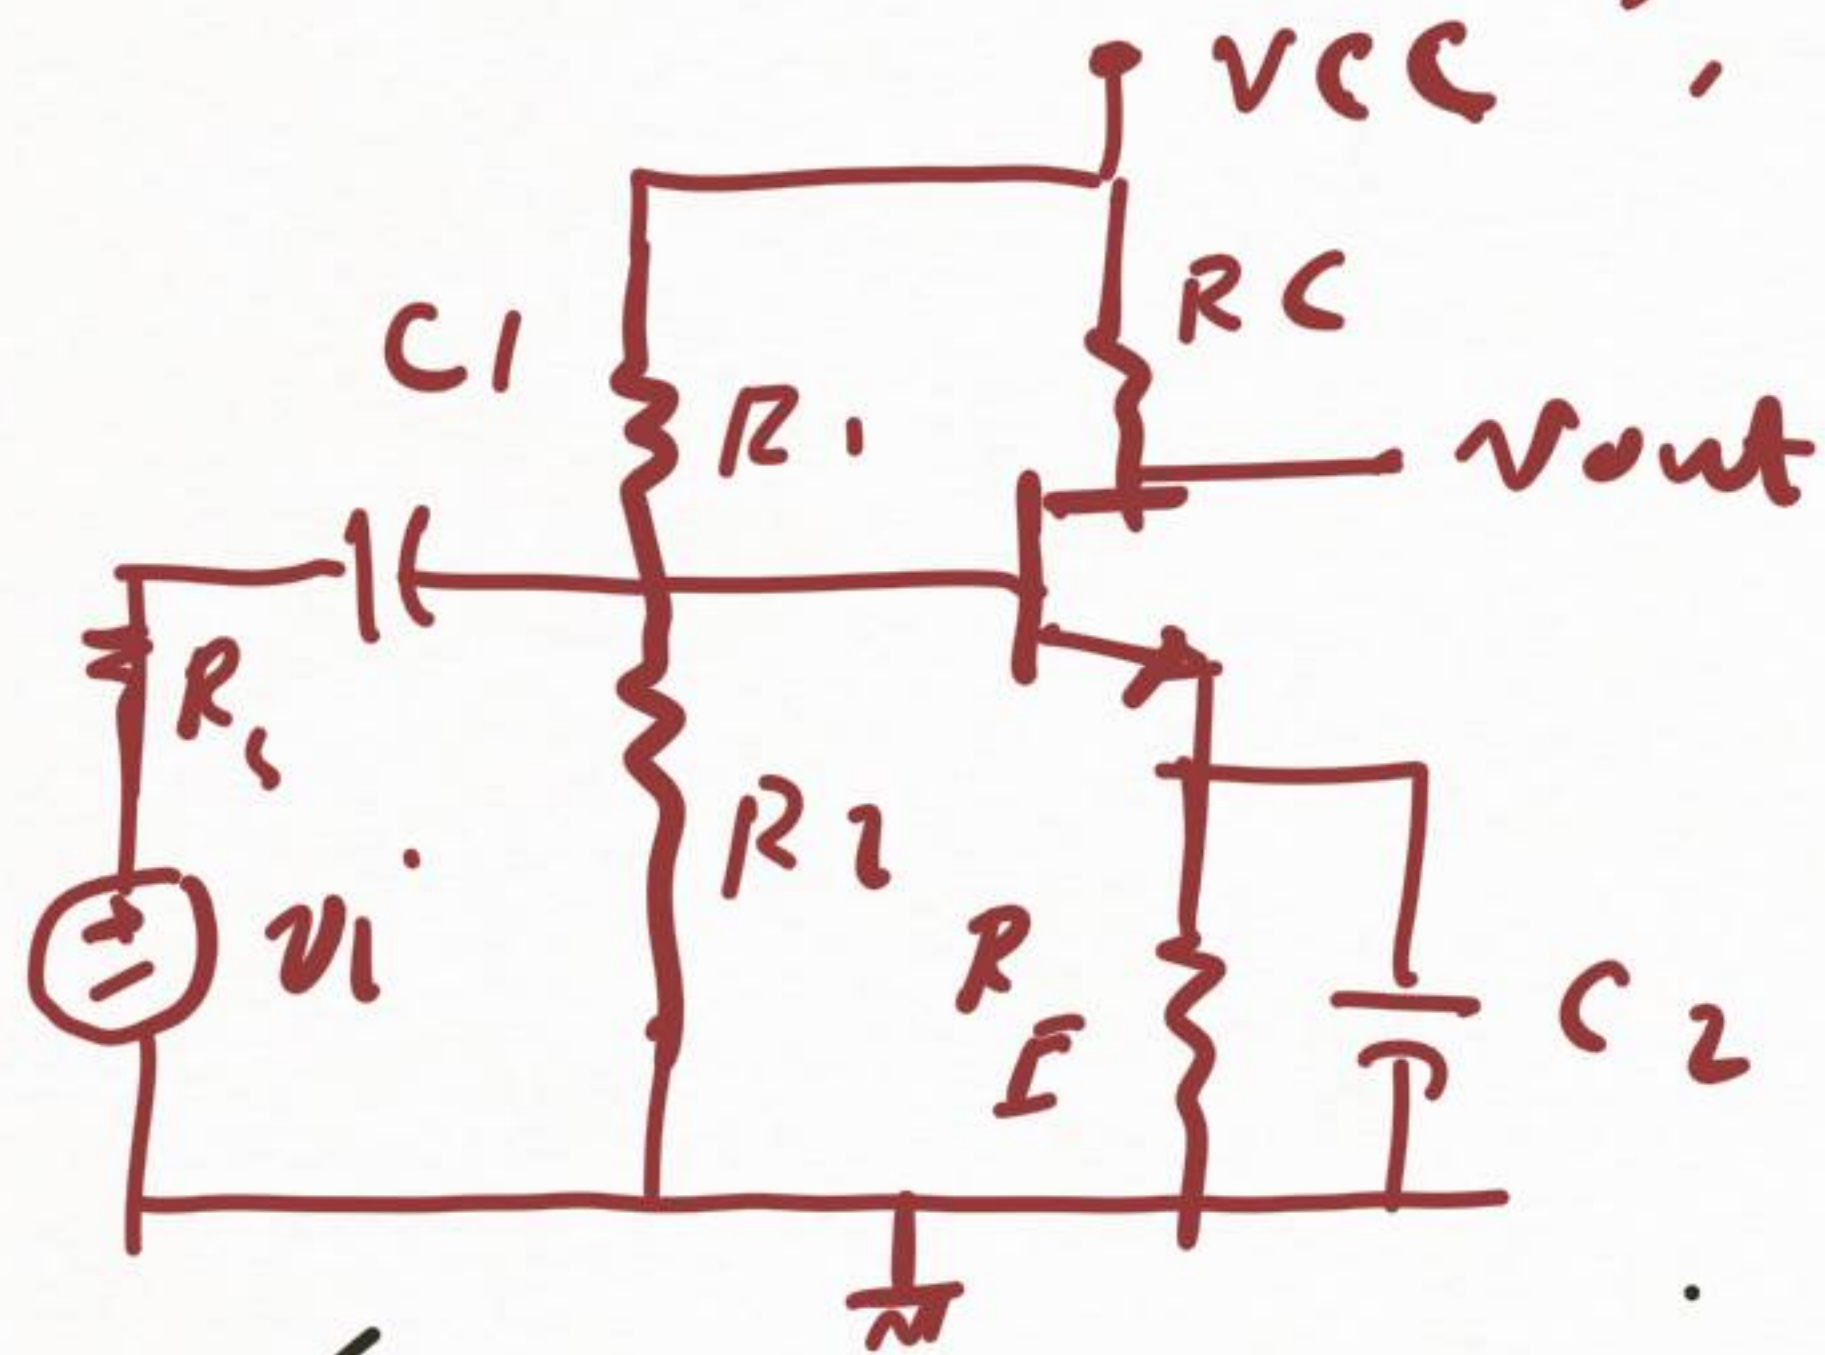 VCC
RC
C1
R1
Vout
R
R2
V1
RE
C2